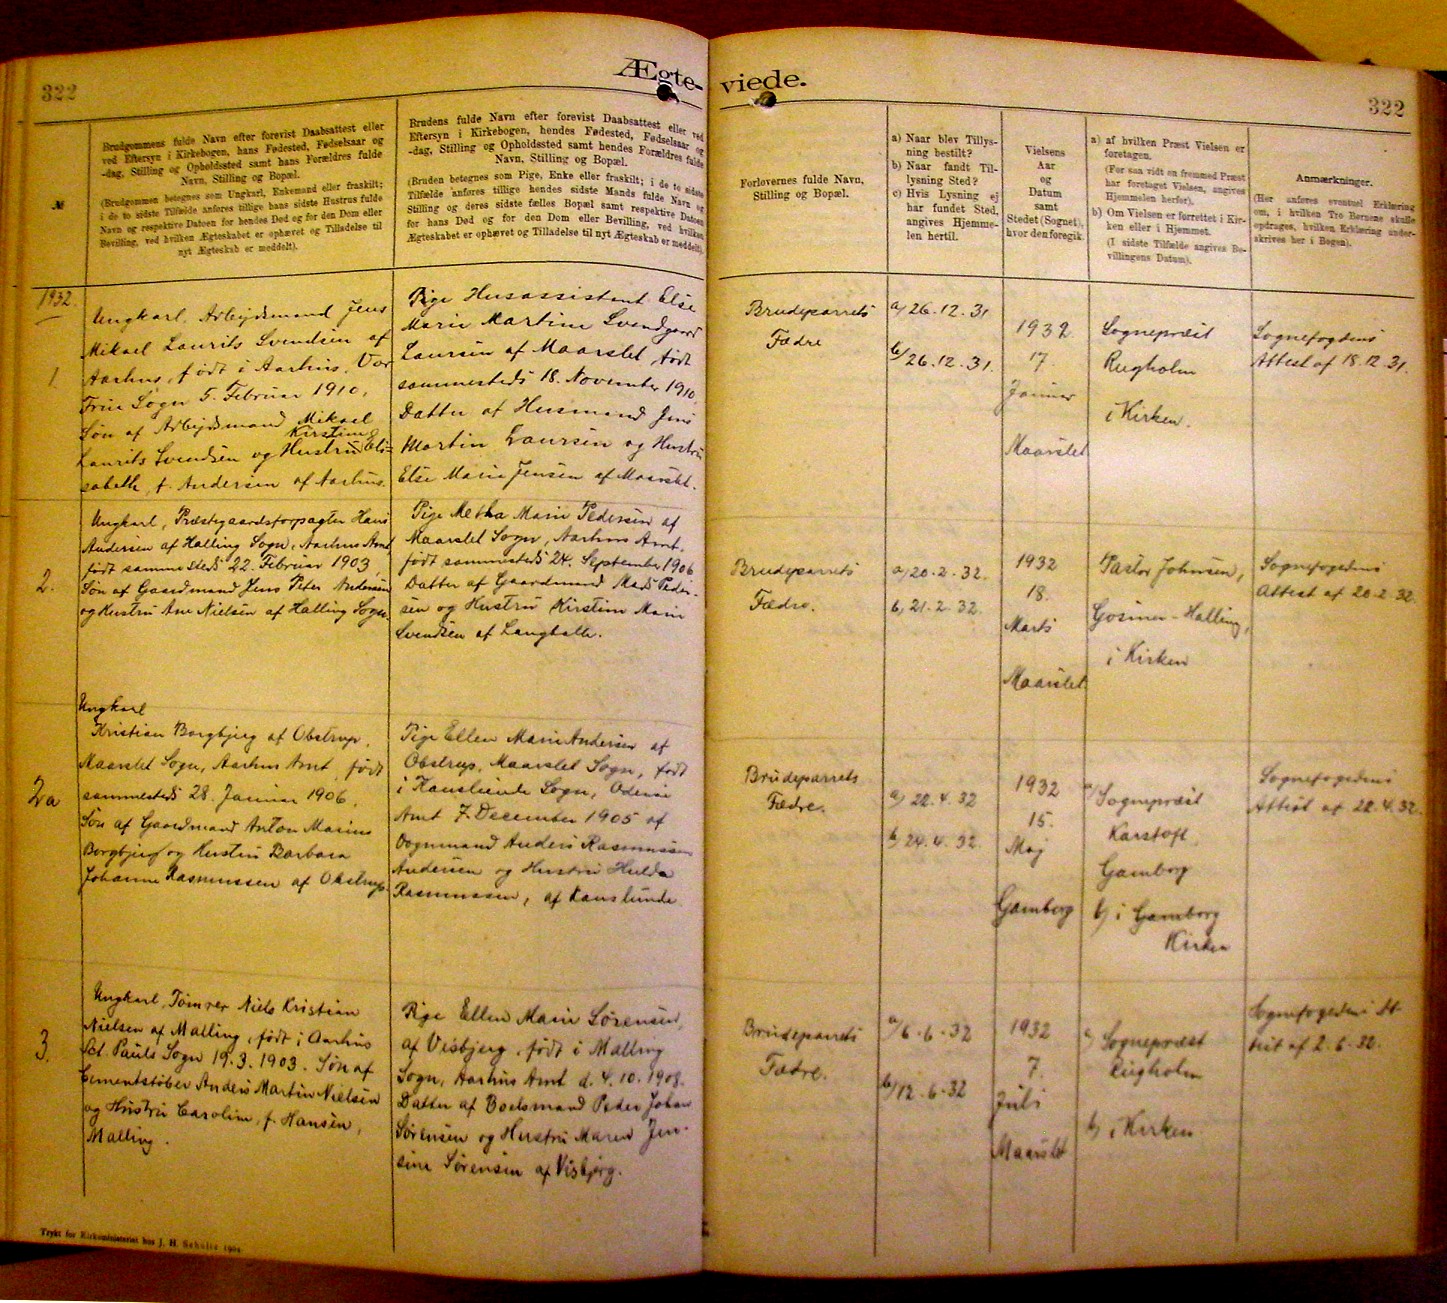 322
Ægte-
viede.
322
№
Brudgommens fulde Navn efter forevist Daabsattest eller
ved Eftersyn i Kirkebogen, hans Fødested, Fødselsaar og
-dag, Stilling og Opholdssted samt hans Forældres fulde
Navn, Stilling og Bopæl.
(Brudgommen betegnes som Ungkarl, Enkemand eller fraskilt;
i de to sidste Tilfælde anføres tillige hans sidste Hustrus fulde
Navn og respektive Datoen for hendes Død og for den Dom eller
Bevilling, ved hvilken Ægteskabet er ophævet og Tilladelse til
nyt Ægteskab er meddelt).
Brudens fulde Navn efter forevist Daabsattest eller ved
Eftersyn i Kirkebogen, hendes Fødested, Fødselsaar og
-dag, Stilling og Opholdssted samt hendes Forældres fulde
Navn, Stilling og Bopæl.
(Bruden betegnes som Pige, Enke eller fraskilt; i de to sidste
Tilfælde anføres tillige hendes sidste Mands fulde Navn og
Stilling og deres sidste fælles Bopæl samt respektive Datoen
for hans Død og for den Dom eller Bevilling, ved hvilken
Ægteskabet er ophævet og Tilladelse til nyt Ægteskab er meddelt).
Forlovernes fulde Navn,
Stilling og Bopæl.
a) Naar blev Tillys-
ning bestilt?
b) Naar fandt Til-
lysning Sted?
c) Hvis Lysning ej
har fundet Sted,
angives Hjemme-
len hertil.
Vielsens
Aar
og
Datum
samt
Stedet (Sognet),
hvor den foregik.
a) af hvilken Præst Vielsen er
foretagen.
(For saa vidt en fremmed Præst
har foretaget Vielsen, angives
Hjemmelen herfor).
b) Om Vielsen er forrettet i Kir-
ken eller i Hjemmet.
(I sidste Tilfælde angives Be-
villingens Datum).
Anmærkninger.
(Her anføres eventuel Erklæring
om, i hvilken Tro Børnene skulle
opdrages, hvilken Erklæring under-
skrives her i Bogen).
1932.
1.
Ungkarl, Arbejdsmand Jens
Mikael Laurits Svendsen af
Aarhus, født i Aarhus, Vor
Frue Sogn 5. Februar 1910,
Søn af Arbejdsmand Mikael
Laurits Svendsen og Hustru Kirstine Eli-
sabeth, f. Andersen af Aarhus.
Pige Husassistent Else
Marie Martine Svendgaard
Laursen af Maarslet, født
sammesteds 18. November 1910,
Datter af Husmand Jens
Martin Laursen og Hustru
Else Marie Jensen af Maarslet.
Brudeparrets
Fædre
a/ 26.12.31
b/ 26.12.31.
1932
17.
Januar
Maarslet
Sognepræst
Rugholm
i Kirken.
Sognefogdens
Attest af 18.12.31.
2.
Ungkarl, Præstegaardsforpagter Hans
Andersen af Halling Sogn, Aarhus Amt,
født sammesteds 22. Februar 1903,
Søn af Gaardmand Jens Peter Andersen
og Hustru Ane Nielsen af Halling Sogn.
Pige Metha Marie Pedersen af
Maarslet Sogn, Aarhus Amt.
født sammesteds 24. September 1906
Datter af Gaardmand Mads Peder-
sen og Hustru Kirstine Marie
Svendsen af Langballe.
Brudeparrets
Fædre.
a/ 20.2.32.
b, 21.2.32.
1932
18.
Marts
Maarslet
Pastor Johnsen,
Gosmer-Halling,
i Kirken
Sognefogedens
Attest af 20.2.32.
2a
Ungkarl
Kristian Borgbjerg af Obstrup,
Maarslet Sogn, Aarhus Amt, født
sammesteds 28. Januar 1906,
Søn af Gaardmand Anton Marius
Borgbjerg og Hustru Barbara
Johanne Rasmussen af Obstrup.
Pige Ellen Marie Andersen af
Obstrup, Maarslet Sogn, født
i Kauslunde Sogn, Odense
Amt 7. December 1905 af
Vognmand Anders Rasmussen
Andersen og Hustru Hulda
Rasmussen, af Kauslunde
Brudeparrets
Fædre.
a) 22.4.32
b 24.4.32.
1932
15.
Maj
Gamborg
a/ Sognepræst
Karstoft,
Gamborg
b) i Gamborg
Kirken
Sognefogedens
Attest af 22.4.32.
3.
Ungkarl, Tømrer Niels Kristian
Nielsen af Malling, født i Aarhus
Sct. Pauls Sogn 19.3.1903. Søn af
Cementstøber Anders Martin Nielsen
og Hustru Caroline, f. Hansen,
Malling.
Pige Ellen Marie Sørensen,
af Visbjerg, født i Malling
Sogn, Aarhus Amt d. 4.10.1908.
Datter af Boelsmand Peder Johan
Sørensen og Hustru Maren Jen-
sine Sørensen af Visbjerg.
Brudeparrets
Fædre.
a/ 6.6.32
b/ 12.6.32
1932
7.
Juli
Maarslet
a) Sognepræst
Rugholm
b) i Kirken
Sognefogedens At-
test af 2.6.32.
Trykt for Kirkeministeriet hos J. H. Schultz 1924